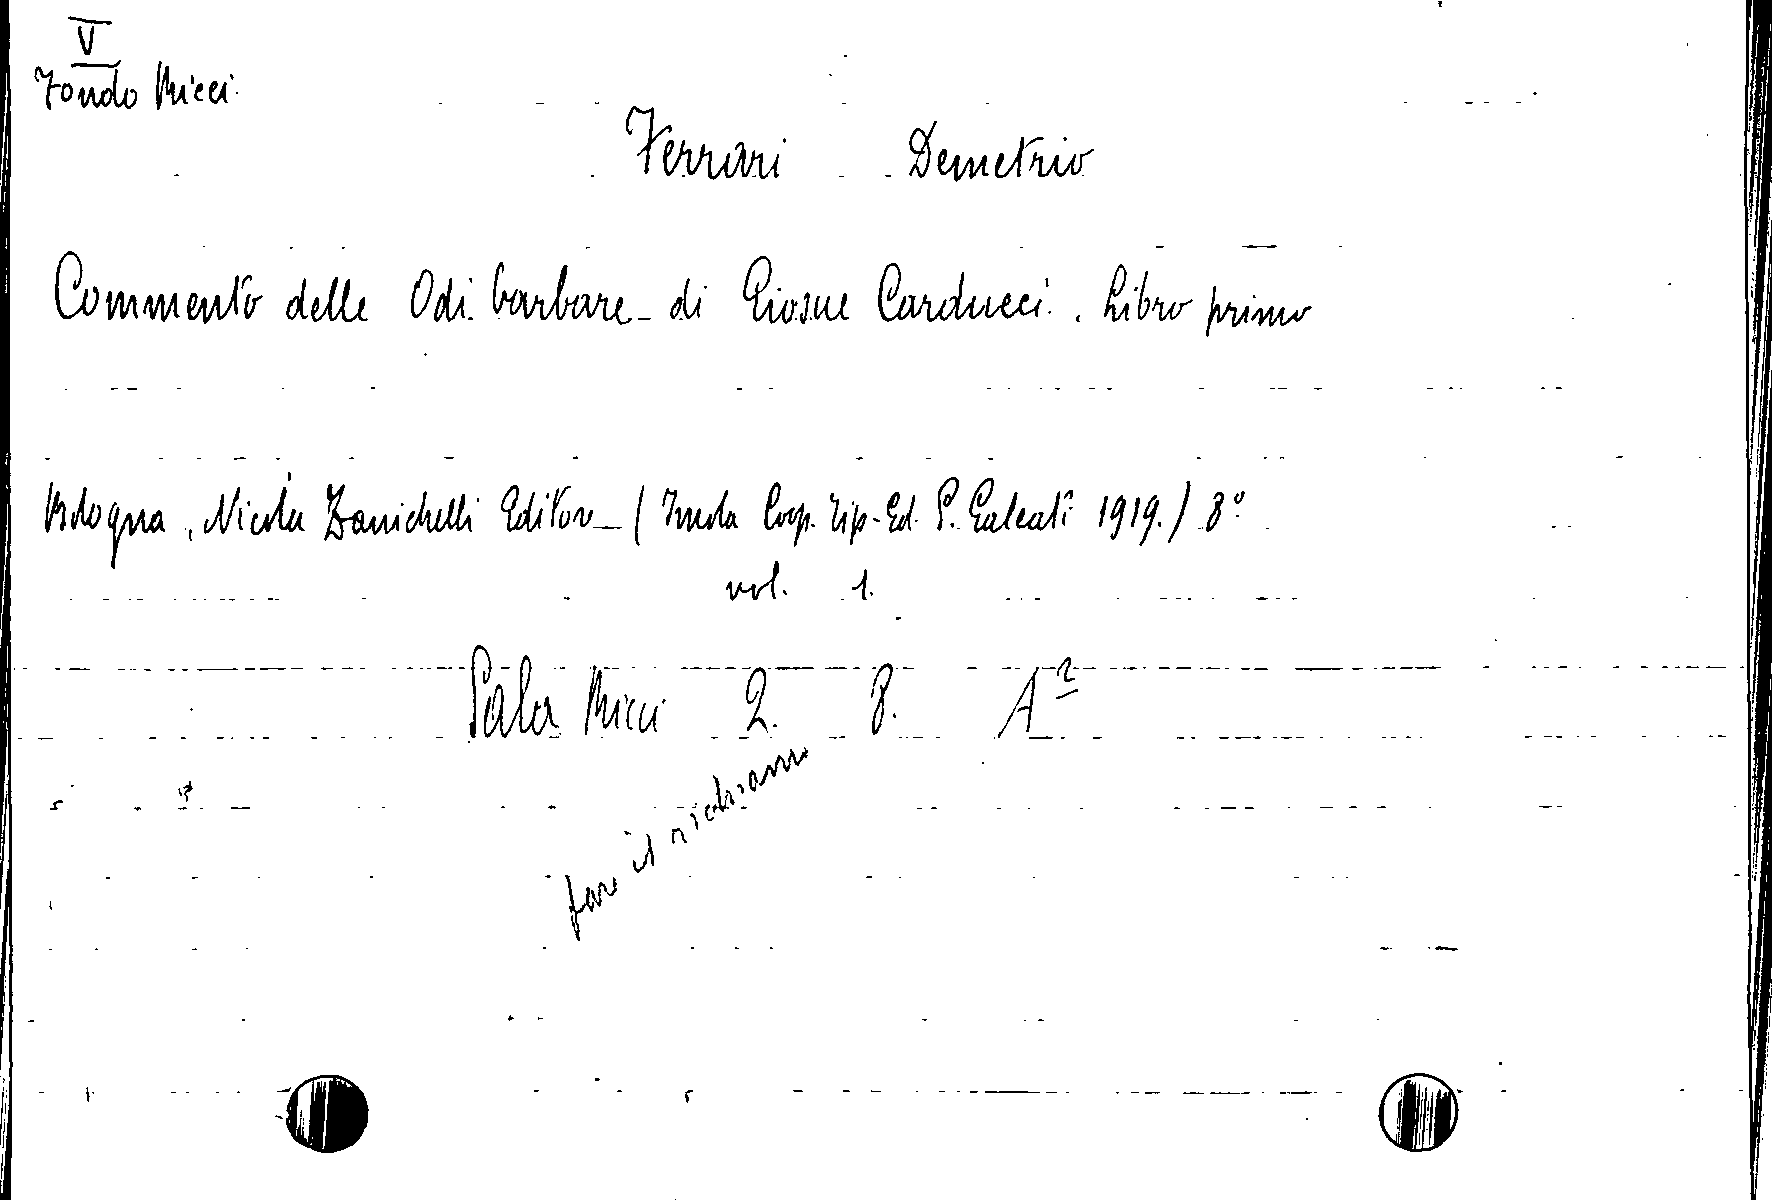 V
Fondo Ricci
Ferrari Demetrio
Commento delle Odi barbare di Giosue Carducci. Libro primo
Bologna, Nicola Zanichelli Editore (Imola Coop. Tip.-Ed. P. Galeati 1919.) 8°
vol. 1.
Sala Ricci 2. 8. A²
fare il richiamo